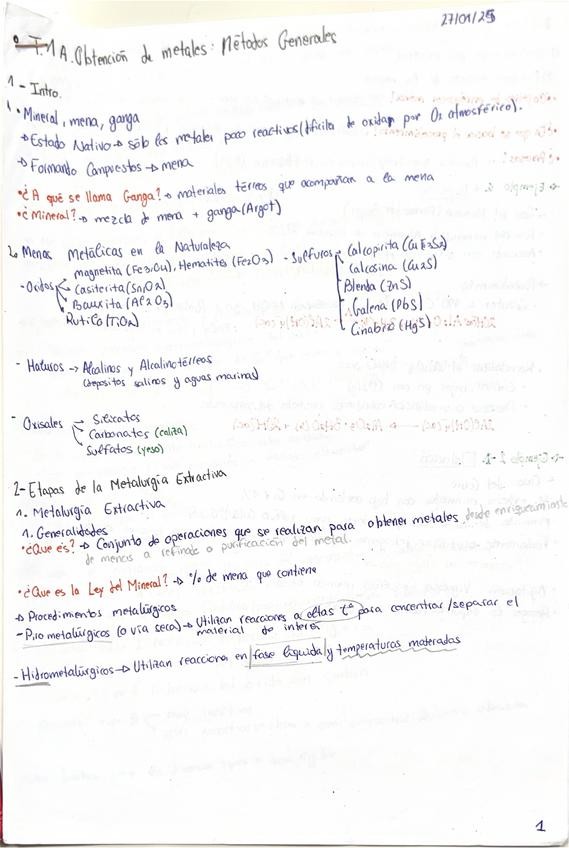 27/01/25
T.1 A. Obtención de metales: Métodos Generales
1- Intro.
1. Mineral, mena, ganga
→ Estado Nativo → sólo los metales poco reactivos (difícil de oxidar por O2 atmosférico).
→ Formando Compuestos → mena
• ¿A qué se llama Ganga? → materiales térreos que acompañan a la mena
• ¿Mineral? → mezcla de mena + ganga (Argot)
2. Menas Metálicas en la Naturaleza
- Oxidos
magnetita (Fe3O4), Hematites (Fe2O3)
Casiterita (SnO2)
Bauxita (Al2O3)
Rutilo (TiO2)
- Sulfuros
Calcopirita (CuFeS2)
Calcosina (Cu2S)
Blenda (ZnS)
Galena (PbS)
Cinabrio (HgS)
- Haluros → Alcalinos y Alcalinotérreos
(depositos salinos y aguas marinas)
- Oxisales
Silicatos
Carbonatos (caliza)
Sulfatos (yeso)
2- Etapas de la Metalurgia Extractiva
1. Metalurgia Extractiva
1. Generalidades
• ¿Que es? → Conjunto de operaciones que se realizan para obtener metales, desde enriquecimiento
de menas a refinado o purificación del metal.
• ¿Que es la Ley del Mineral? → % de mena que contiene
→ Procedimientos metalúrgicos
- Pirometalúrgicos (o vía seca) → Utilizan reacciones a altas tª para concentrar/separar el
material de interés
- Hidrometalúrgicos → Utilizan reacciona en fase liquida y temperaturas moteradas
1